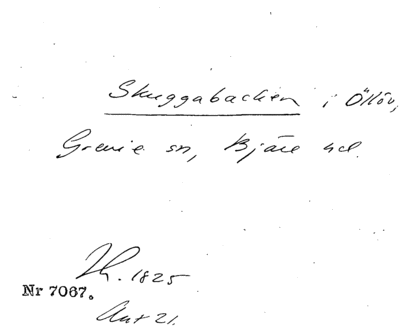 Skuggabacken i Öllöv,
Grevie sn, Bjäre hd.
Th. 1825
Nr 7067.
Ant 21.